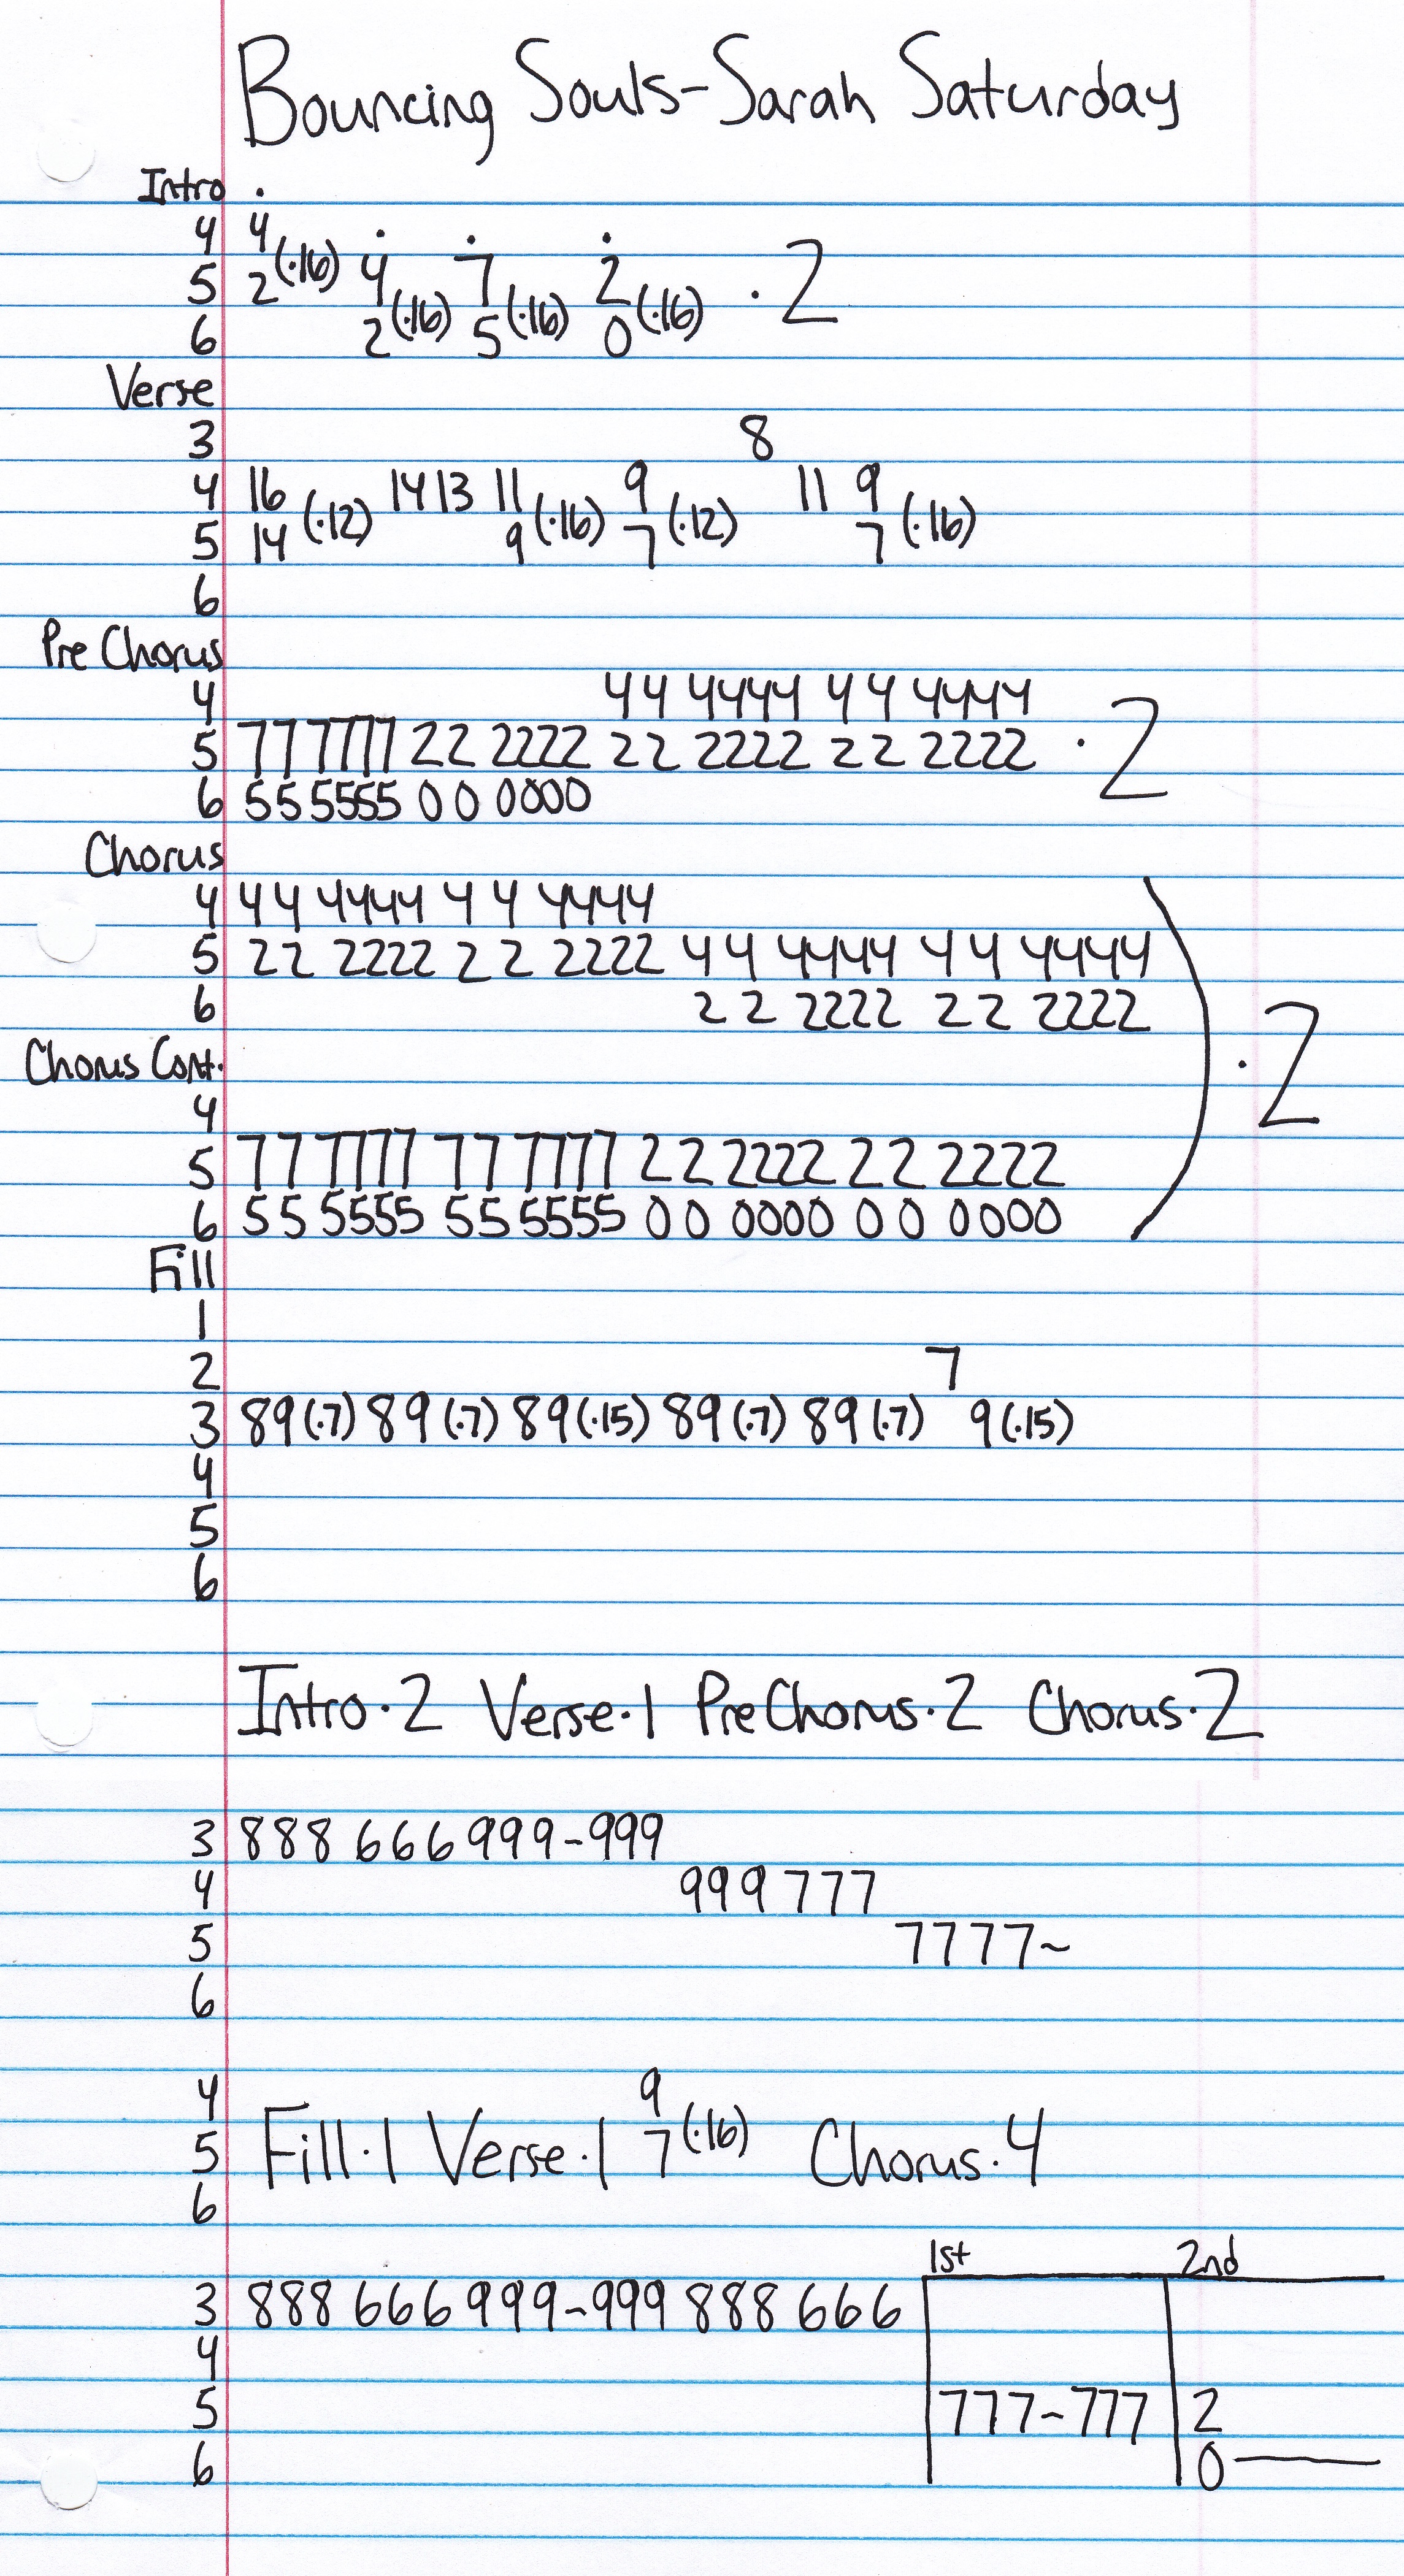 Bouncing Souls-Sarah Saturday
Intro .
4 4
5 2(·16) 4 7 2 ·2
6 2(·16) 5(·16) 0(·16)
Verse
3 8
4 16 14 13 11 9 11 9
5 14(·12) 9(·16) 7(·12) 7(·16)
6
Pre Chorus
4 44 4444 44 4444
5 77 7777 22 2222 22 2222 22 2222 ·2
6 55 5555 00 0000
Chorus
4 44 4444 44 4444
5 22 2222 22 2222 44 4444 44 4444
6 22 2222 22 2222 ·2
Chorus Cont.
4
5 77 7777 77 7777 22 2222 22 2222
6 55 5555 55 5555 00 0000 00 0000
Fill
1
2 7
3 89(·7) 89(·7) 89(·15) 89(·7) 89(·7) 9(·15)
4
5
6
Intro·2 Verse·1 PreChorus·2 Chorus·2
3 888 666 999-999
4 999 777
5 7777~
6
4 9
5 Fill·1 Verse·1 7(·16) Chorus·4
6
1st 2nd
3 888 666 999-999 888 666
4
5 777~777 2
6 0